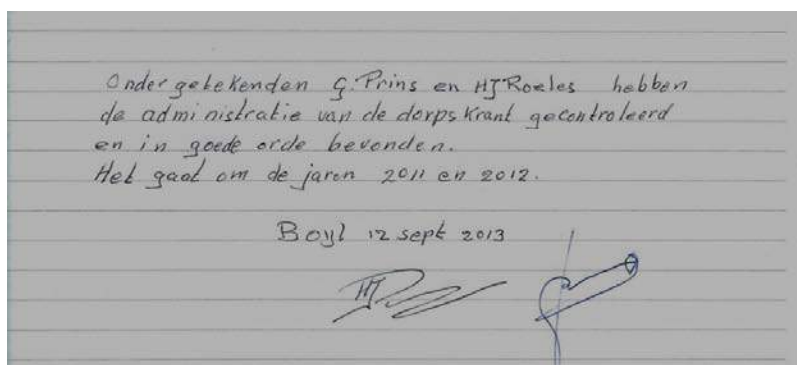 Ondergetekenden G. Prins en HJ Roeles hebben
de administratie van de dorpskrant gecontroleerd
en in goede orde bevonden.
Het gaat om de jaren 2011 en 2012.
Boyl 12 sept 2013